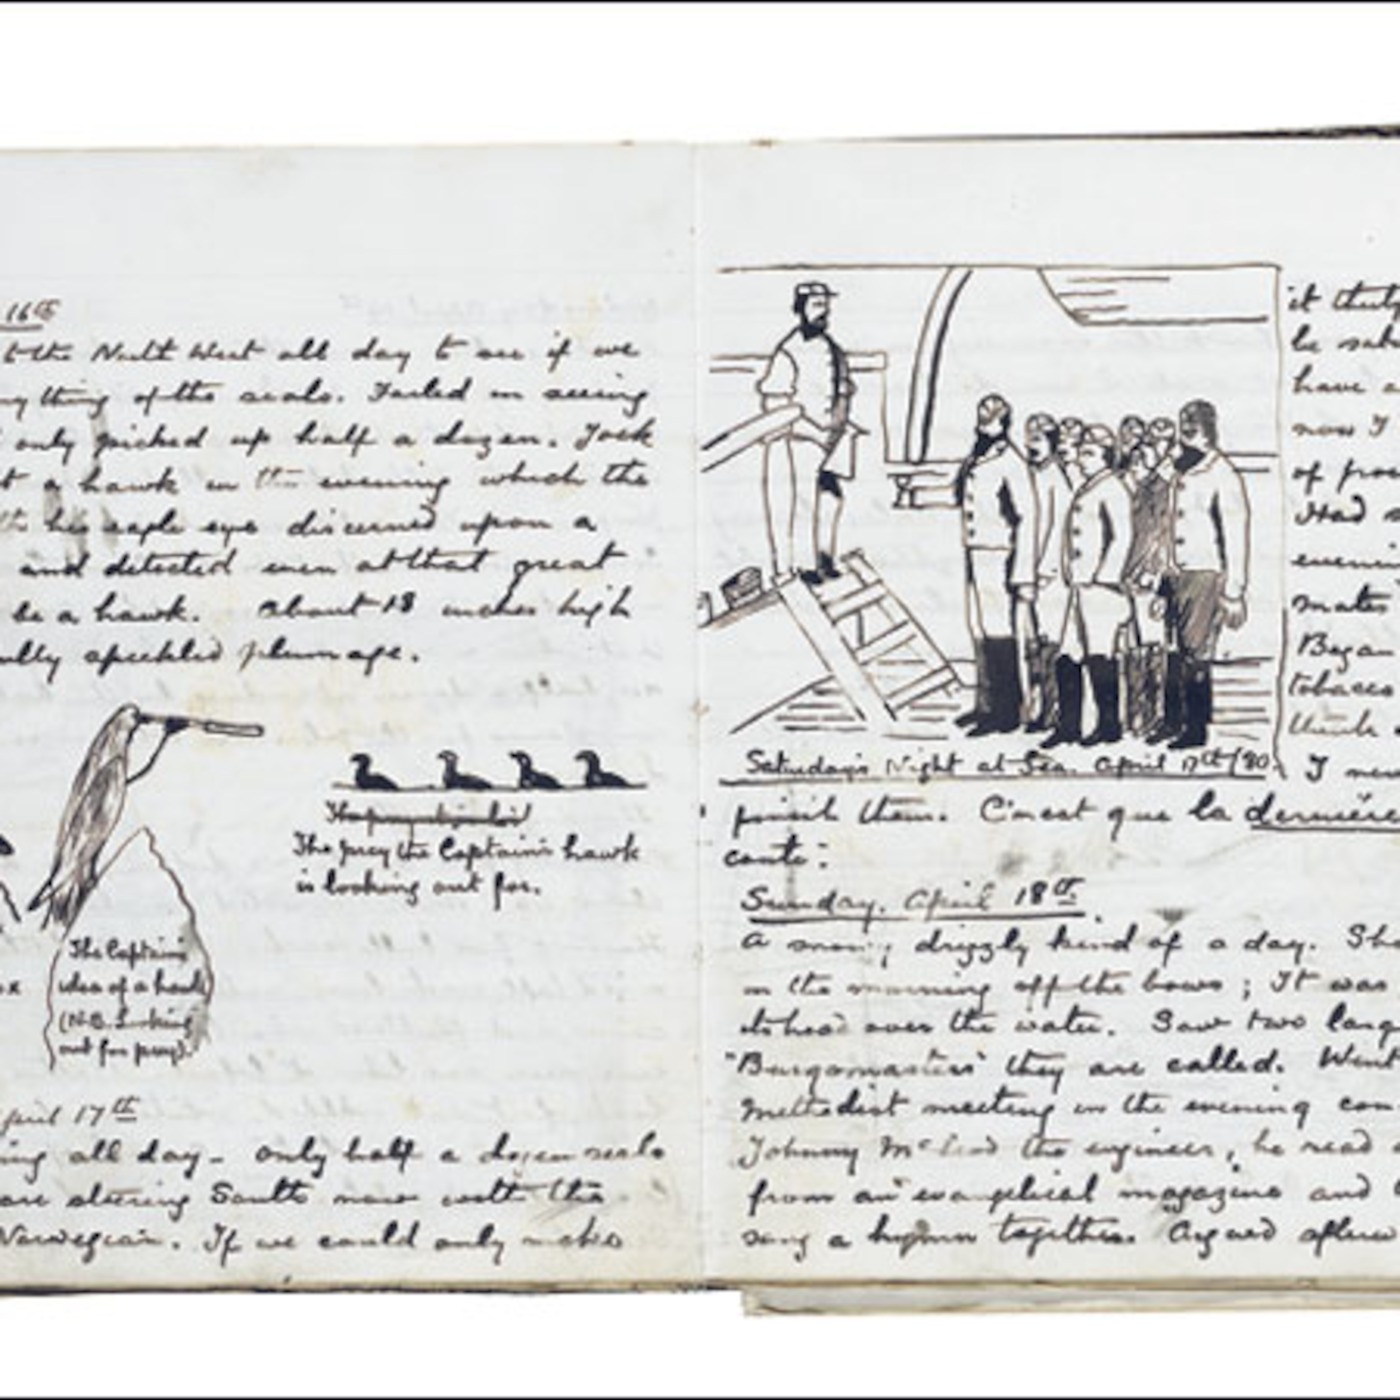 16th
t the North West all day to see if we
anything of the seals. Failed in seeing
only picked up half a dozen. Jack
t a hawk in the evening which the
his eagle eye discerned upon a
and detected even at that great
be a hawk. About 18 inches high
speckled plumage.
The prey the Captain's hawk
is looking out for.
The Captain's
idea of a hawk
(N.B. Looking
out for prey).
April 17th
ing all day - only half a dozen seals
are steering South now with the
Norwegian. If we could only make
Saturday's Night at Sea. April 17th/80.
it
be
have a
now I
of
Had
evenin
mates
Began
tobacco
think
I
finish them. C'est que la dernière
coute:
Sunday. April 18th
A drizzly kind of a day. Sho
in the morning off the bows; It was
its head over the water. Saw two larg
"Burgomasters" they are called. Went
Methodist meeting in the evening con
Johnny McLeod the engineer, he read
from an evangelical magazine and
sang a hymn together. Argued afterw